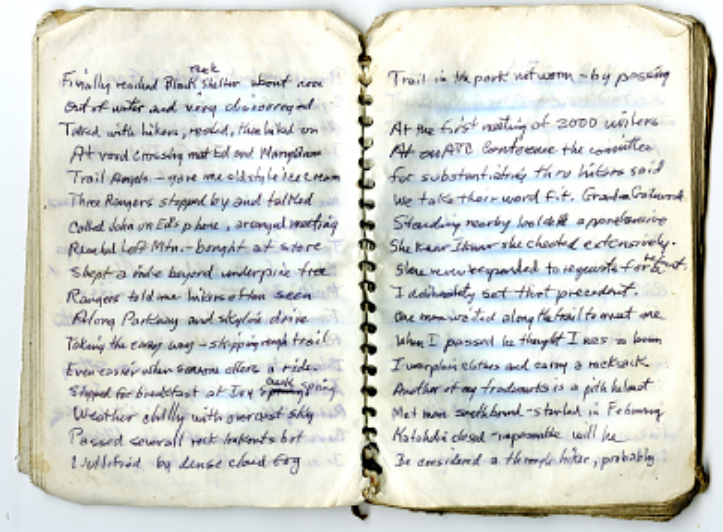 rock
Finally reached Black shelter about noon
Out of water and very discouraged
Talked with hikers, rested, then hiked on
At road crossing met Ed and Maryann
Trail Angels - gave me oldstyle ice cream
Three Rangers stopped by and talked
Called John on Ed's phone, arranged meeting
Reached Loft Mtn. - bought at store
Slept a mile beyond under pine tree
Rangers told me hikers often seen
Along Parkway and skyline drive
Taking the easy way - skipping rough trail
Even easier when someone offers a ride.
Stopped for breakfast at Ivy Creek spring
Weather chilly with overcast sky
Passed several rock lookouts but
nullified by dense cloud fog
Trail in the park not worn - by passing
At the first meeting of 2000 milers
At an ATC Conference the committee
for substantiating thru hikers said
We take their word for it. Grandma Gatewood
Standing nearby looked apprehensive
She knew I knew she cheated extensively.
She never responded to requests for
I deliberately set that precedent.
One man waited along the trail to meet me
When I passed he thought I was a bum
I wear plain clothes and carry a rucksack.
Another of my trademarks is a pith helmet
Met man southbound - started in February
Katahdin closed - impossible will he
Be considered a through hiker, probably